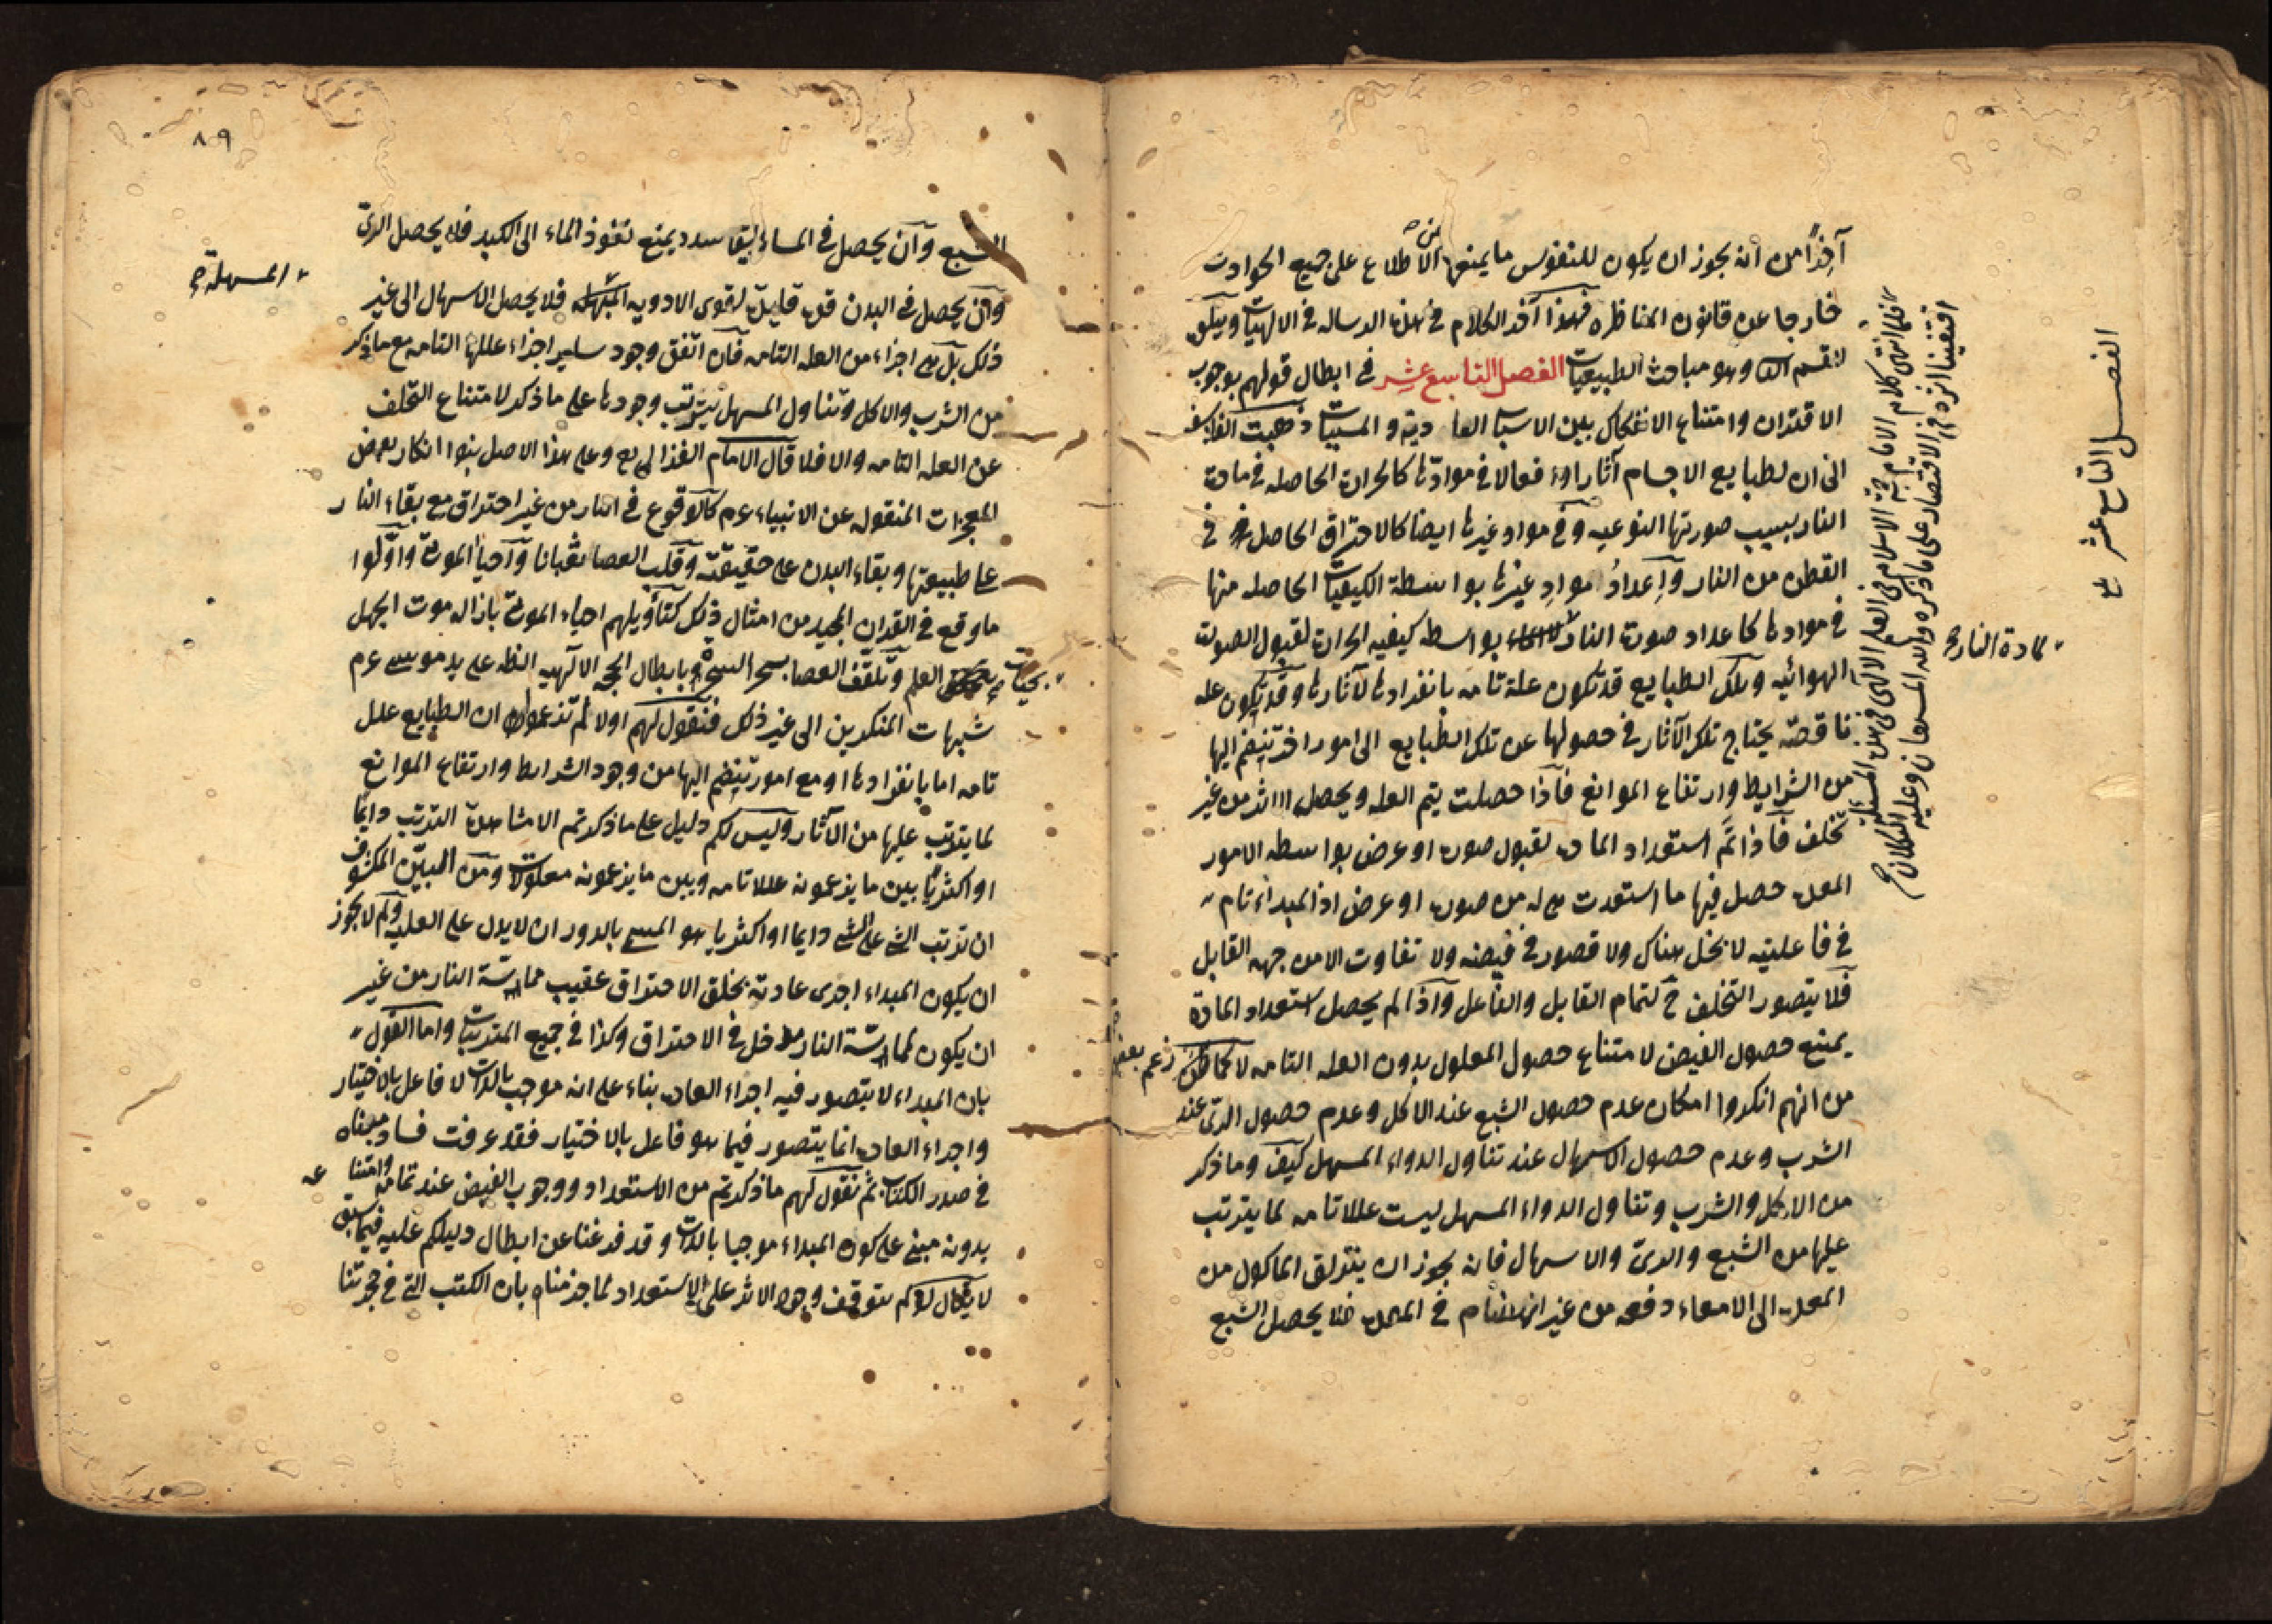 آخذا من انه يجوز ان يكون للنفوس ما يمنعها من الاطلاع على جميع الحوادث
خارجا عن قانون المناظره فهذا آخر الكلام في هذه الرساله في الالهيات ويتلوه
القسم وهو مباحث الطبيعيات الفصل التاسع عشر في ابطال قولهم بوجوب
الاقتران وامتناع الانفكاك بين الاسباب العادية والمسببات ذهبت الفلاسفة
الى ان لطبايع الاجسام آثارا وافعالا في موادّها كالحرارة الحاصله في مادة
النار بسبب صورتها النوعيه وفي مواد غيرها ايضا كالاحتراق الحاصل في
القطن من النار وإعدادُ موادِ غيرها بواسطة الكيفيات الحاصله منها
في موادها كاعداد صورة النار بواسطه كيفيه الحرارة لقبول الصورة
الهوائيه وتلك الطبايع قد تكون علة تامه بانفرادها لآثارها وقد تكون عله
ناقصة يحتاج تلك الآثار في حصولها عن تلك الطبايع الى امور اخر تنضم اليها
من الشرايط وارتفاع الموانع فاذا حصلت يتم العله ويحصل الاثر من غير
تخلف فاذا تمّ استعداد المادة لقبول صورة او عرض بواسطه الامور
المعدة حصل فيها ما استعدت هي له من صورة او عرض اذ المبداء تام
في فاعليته لا بخل هناك ولا قصور في فيضه ولا تفاوت الا من جهه القابل
فلا يتصور التخلف ح لتمام القابل والفاعل واذا لم يحصل استعداد المادة
يمتنع حصول الفيض لامتناع حصول المعلول بدون العله التامه لا كما ظن زعم بعض
من انهم انكروا امكان عدم حصول الشبع عند الاكل وعدم حصول الرى عند
الشرب وعدم حصول الاسهال عند تناول الدواء المسهل كيف وما ذكر
من الاكل والشرب وتناول الدواء المسهل ليست عللا تامه لما يترتب
عليها من الشبع والرىّ والاسهال فانه يجوز ان ينزلق الماكول من
المعدة الى الامعاء دفعه من غير انهضام في المعدة فلا يحصل الشبع
الفصل التاسع عشر
فلما انتهى كلام الامام حجة الاسلام في العلم الالهى في هذه المسئلة
اقتفينا اثره في الاقتصار على ما ذكره والله المستعان وعليه التكلان
لمادة النار صح
٨٩
الشبع وان يحصل في الماساريقا سدد يمنع نفوذ الماء الى الكبد فلا يحصل الرىّ
وان يحصل في البدن قوة قابلة لقوى الادويه المسهله فلا يحصل الاسهال الى غير
ذلك بل هي اجزاء من العله التامه فان اتفق وجود ساير اجزاء عللها التامه مع ما ذكر
من الشرب والاكل وتناول المسهل يترتب وجودها على ما ذكر لامتناع التخلف
عن العله التامه والا فلا قال الامام الغزالي رح وعلى هذا الاصل بنوا انكار بعض
المعجزات المنقوله عن الانبياء عم كالوقوع في النار من غير احتراق مع بقاء النار
على طبيعتها وبقاء البدن على حقيقته وقلب العصا ثعبانا واحياء الموتى واوّلوا
ما وقع في القرآن المجيد من امثال ذلك كتأويلهم احياء الموتى بازاله موت الجهل
بحيات العلم وتلقف العصا سحر السحرة بابطال الحجه الالهيه الظه على يد موسى عم
شبهات المنكرين الى غير ذلك فنقول لهم اولا لم تزعمون ان الطبايع علل
تامه اما بانفرادها او مع امور ينضم اليها من وجود الشرايط وارتفاع الموانع
لما يترتب عليها من الآثار وليس لكم دليل على ما ذكرتم الا مشاهدة الترتب دايما
او اكثريا بين ما يزعمونه عللا تامه وبين ما يزعمونه معلولات ومن البين المكشوف
ان ترتب الشي على الشي دايما او اكثريا هو المسمى بالدوران لا يدل على العليه ولم لا يجوز
ان يكون المبداء اجرى عادته بخلق الاحتراق عقيب مماسّة النار من غير
ان يكون لمماسّة النار مدخل في الاحتراق وكذا في جميع المترتبات واما القول
بان المبداء لا يتصور فيه اجراء العادة بناء على انه موجب بالذات لا فاعل بالاختيار
واجراء العادة انما يتصور فيما هو فاعل بالاختيار فقد عرفت فساد مبناه
في صدر الكتاب ثم نقول لهم ما ذكرتم من الاستعداد ووجوب الفيض عند تمامه وامتناعه
بدونه مبني على كون المبداء موجبا بالذات وقد فرغنا عن ابطال دليلكم عليه فيما سبق
لا يقال لو لم يتوقف وجود الاثر على الاستعداد لما جزمناه بان الكتب التي في حجرتنا
المسهلة صح